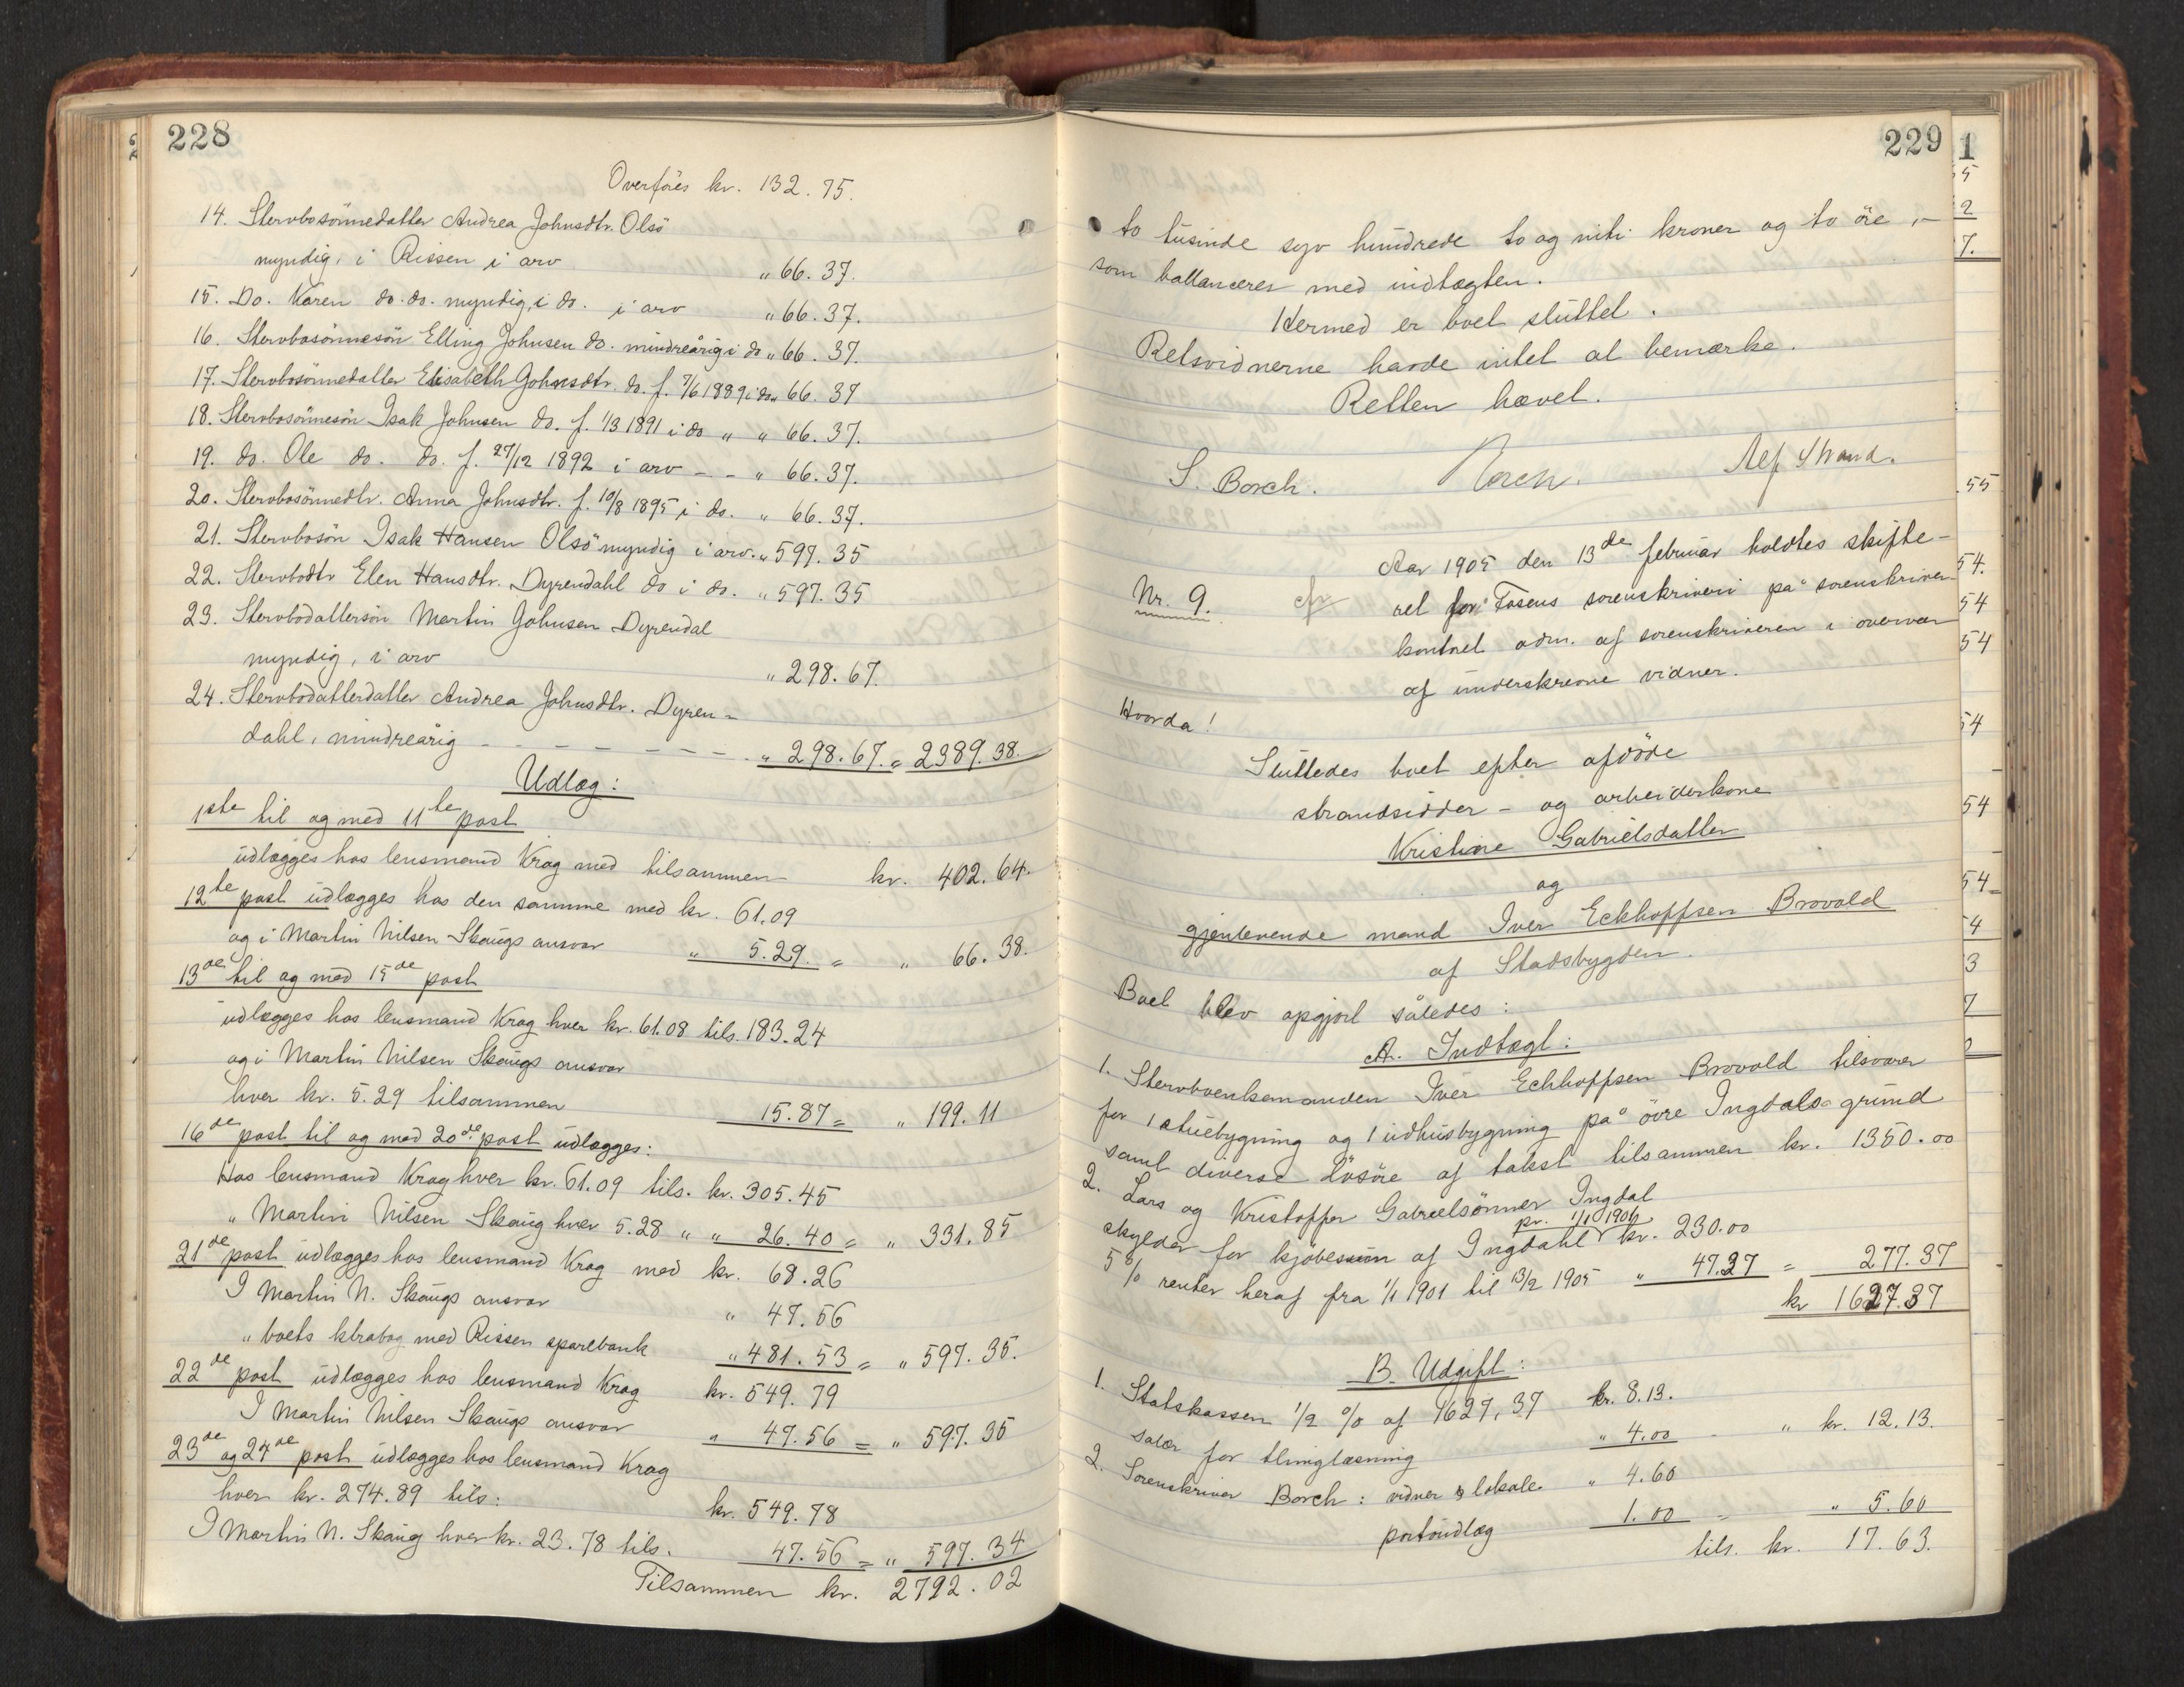 228
Overføres kr. 132.75.
14. Stervbosönnedatter Andrea Johnsdtr. Olsö
myndig, i Rissen i arv " 66.37.
15. Do. Karen do. do. myndig, i do. i arv " 66.37.
16. Stervbosönnesön Elling Johnsen do. mindreårig i do " 66.37.
17. Stervbosönnedatter Elisabeth Johnsdtr. do. f. 7/6 1889 i do " 66.37
18. Stervbosönnesön Isak Johnsen do. f. 1/3 1891 i do " " 66.37.
19. do. Ole do. do. f. 27/12 1892 i arv - - " 66.37.
20. Stervbosönnedtr. Anna Johnsdtr. f. 10/8 1895 i do. " 66.37.
21. Stervbosön Isak Hansen Olsö myndig i arv. " 597.35
22. Stervbodtr Elen Hansdtr. Dyrendahl do i do. " 597.35
23. Stervbodattersön Martin Johnsen Dyrendal
myndig, i arv " 298.67.
24. Stervbodatterdatter Andrea Johnsdtr. Dyren-
dahl, mindreårig - - - - - - - " 298.67. = 2389.38.
Udlæg:
1ste til og med 11te post
udlægges hos lensmand Krag med tilsammen kr. 402.64.
12te post udlægges hos den samme med kr. 61.09
og i Martin Nilsen Skaugs ansvar " 5.29. = " 66.38.
13de til og med 15de post
udlægges hos lensmand Krag hver kr. 61.08 tils. 183.24
og i Martin Nilsen Skaugs ansvar
hver kr. 5.29 tilsammen 15.87 = " 199.11
16de post til og med 20de post udlægges:
Hos lensmand Krag hver kr. 61.09 tils. kr. 305.45
" Martin Nilsen Skaug hver 5.28 " " 26.40 = " 331.85
21de post udlægges hos lensmand Krag med kr. 68.26
I Martin N. Skaugs ansvar " 47.56
" boets ktrabog med Rissen sparebank " 481.53 = " 597.35.
22de post udlægges hos lensmand Krag kr. 549.79
I Martin Nilsen Skaugs ansvar " 47.56 = " 597.35
23de og 24de post udlægges hos lensmand Krag
hver kr. 274.89 tils: kr. 549.78
I Martin N. Skaug hver kr. 23.78 tils. 47.56 = " 597.34
Tilsammen kr. 2792.02
229
to tusinde syv hundrede to og niti kroner og to øre,-
som ballanceres med indtægten.
Hermed er boet sluttet.
Retsvidnerne havde intet at bemærke.
Retten hævet.
S. Borch. Borch. Alf Strand.
Nr. 9.
Aar 1905 den 13de februar holdtes skifte-
ret for Fosens sorenskriveri på sorenskriver-
kontoret adm. af sorenskriveren i overvær
af underskrevne vidner.
Hvorda!
Sluttedes boet efter afdöde
strandsidder- og arbeiderkone
Kristine Gabrielsdatter
og
gjenlevende mand Iver Eckhoffsen Brovold
af Stadsbygden.
Boet blev opgjort således:
A. Indtægt:
1. Stervboenkemanden Iver Eckhoffsen Brovold tilsvarer
for 1 stuebygning og 1 udhusbygning på övre Ingdals grund
samt diverse lösöre af takst tilsammen kr. 1350.00
2. Lars og Kristoffer Gabrielsönner Ingdal
skylder for kjöbesum af Ingdahl pr. 1/1 1901 kr. 230.00
5% renter heraf fra 1/1 1901 til 13/2 1905 " 47.37 = 277.37
kr 1627.37
B. Udgift:
1. Statskassen 1/2 % af 1627,37 kr. 8.13.
salær for thinglæsning " 4.00 - " kr. 12.13.
2. Sorenskriver Borch: vidner & lokale " 4.60
portoudlæg 1.00 - " 5.60
tils. kr. 17.63.